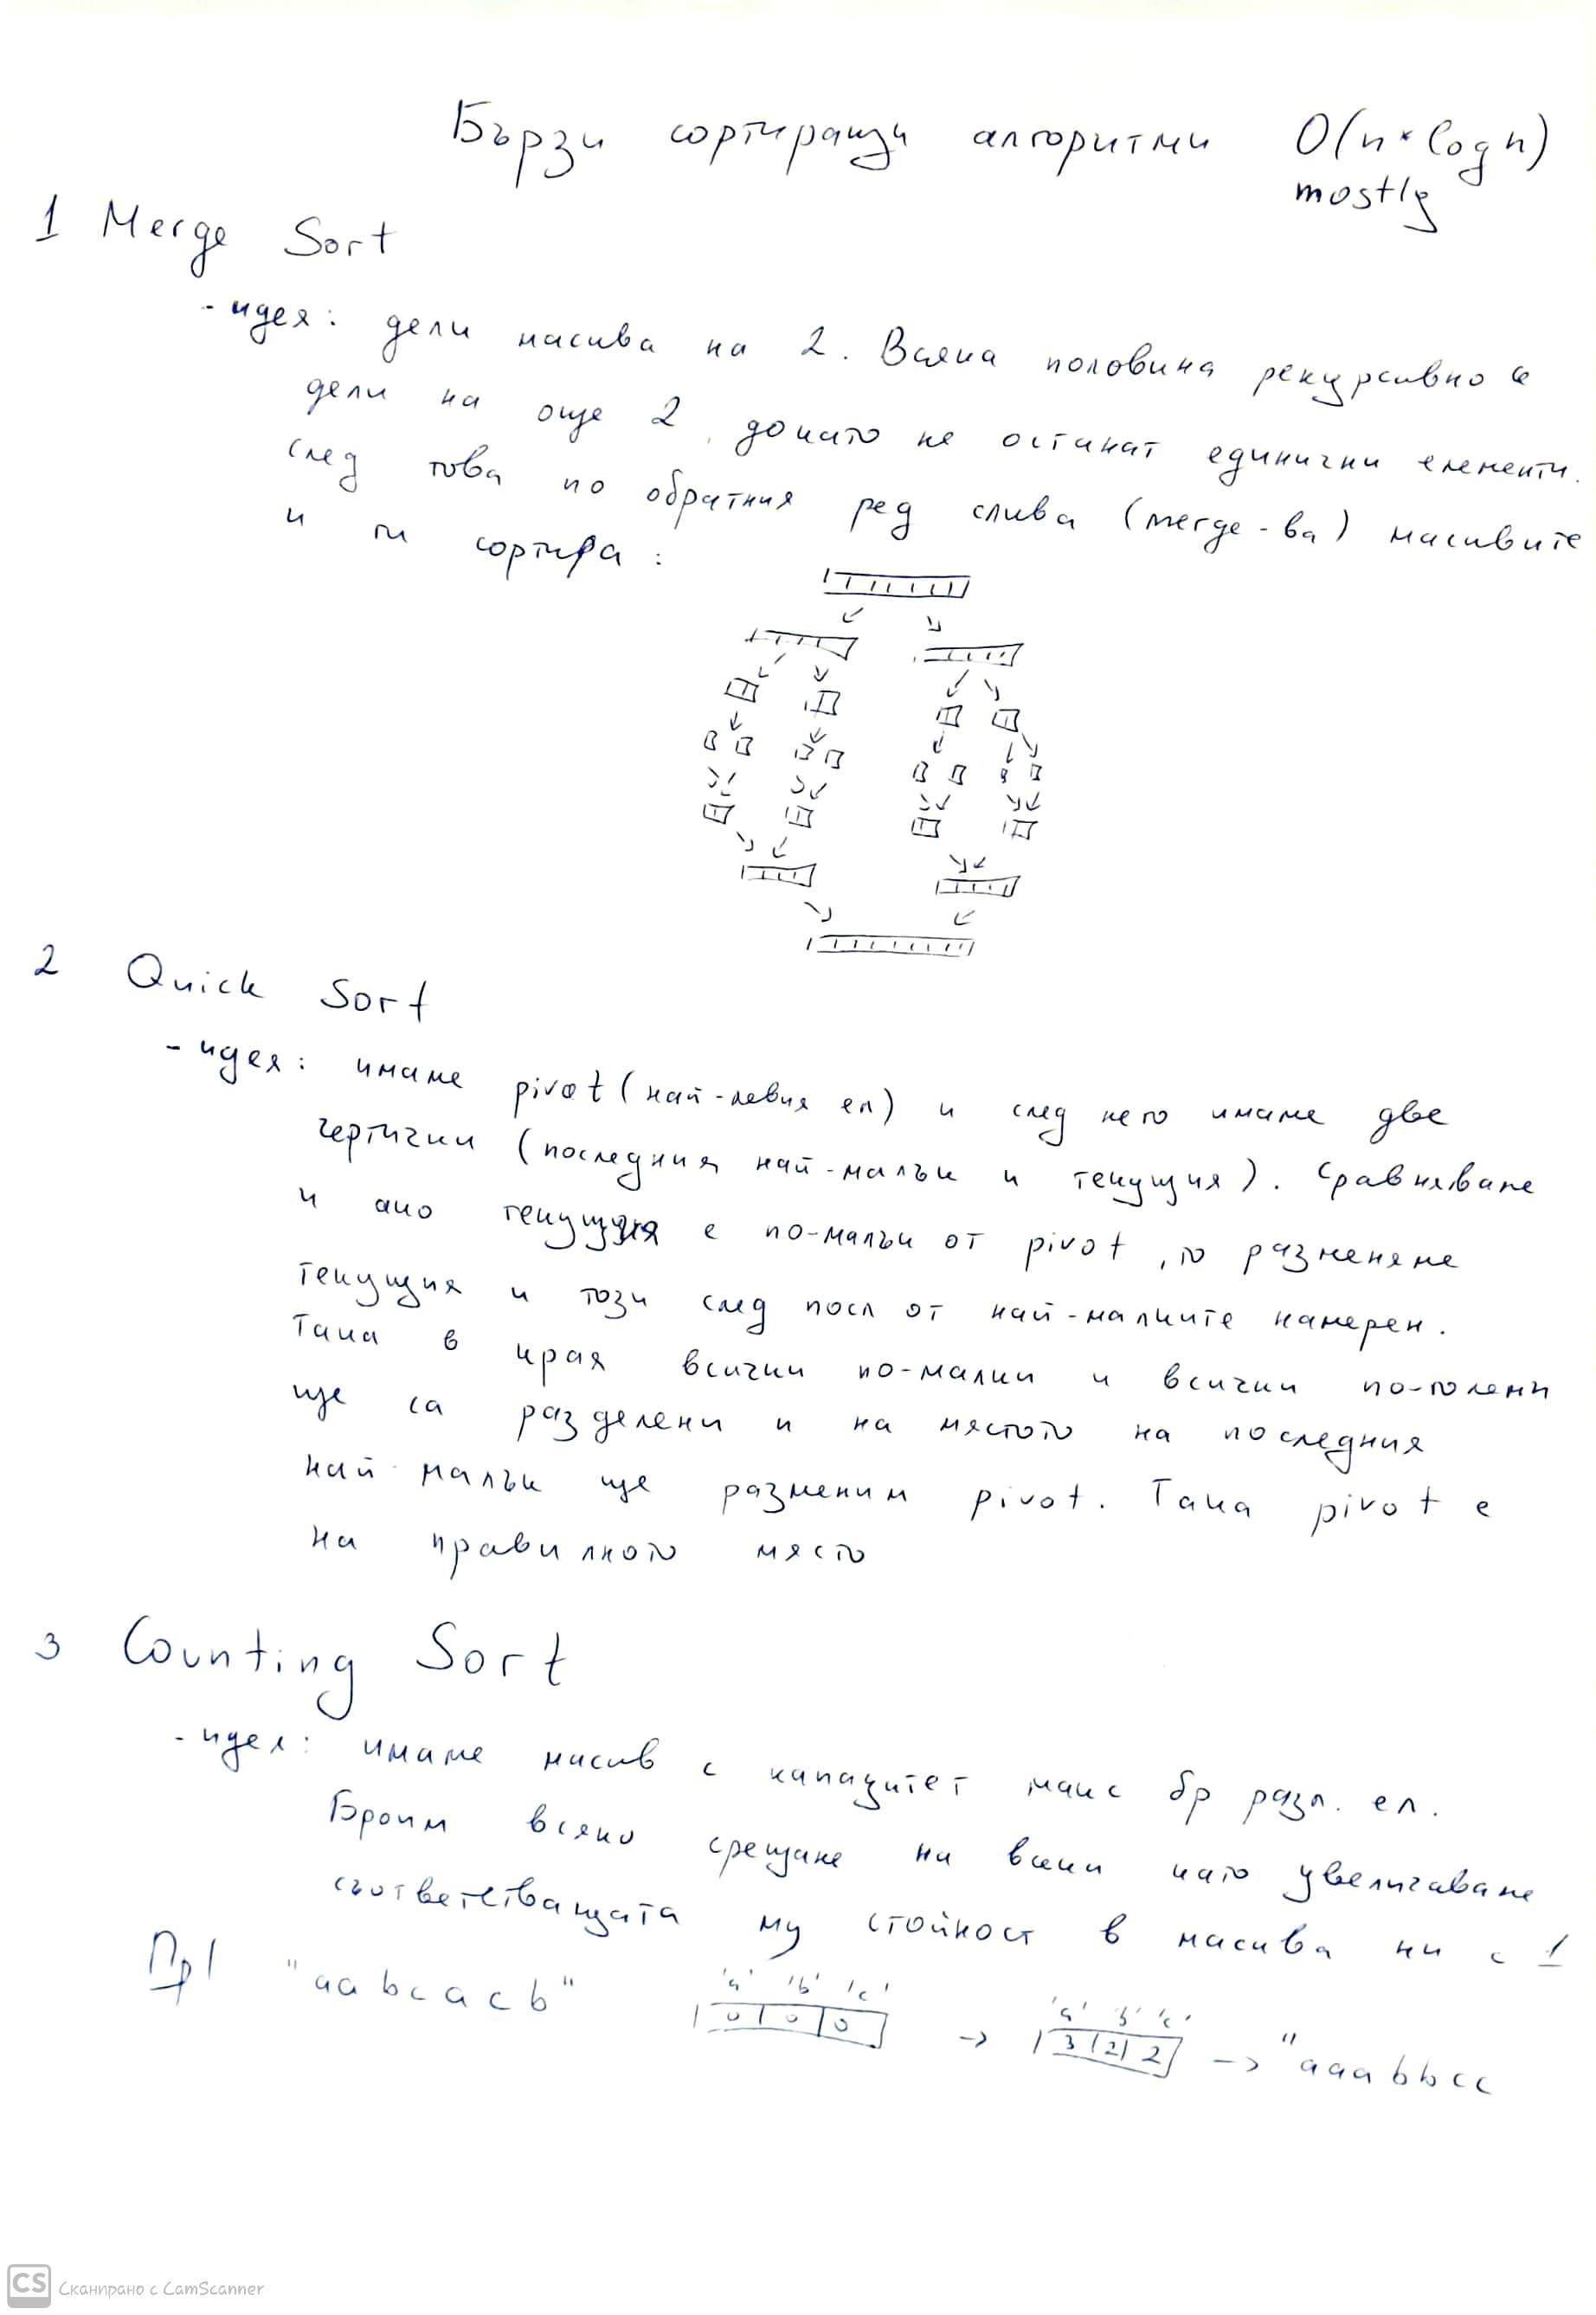 Бързи сортиращи алгоритми O(n*logn)
mostly
1 Merge Sort
- идея: дели масива на 2. Всяка половина рекурсивно се
дели на още 2, докато не останат единични елементи.
След това по обратния ред слива (merge-ва) масивите
и ги сортира:
2 Quick Sort
- идея: имаме pivot (най-левия ел) и след него имаме две
чертички (последния най-малък и текущия). Сравняваме
и ако текущия е по-малък от pivot, то разменяме
текущия и този след посл от най-малките намерен.
Така в края всички по-малки и всички по-големи
ще са разделени и на мястото на последния
най-малък ще разменим pivot. Така pivot е
на правилното място
3 Counting Sort
- идея: имаме масив с капацитет макс бр разл. ел.
Броим всяко срещане на всеки като увеличаваме
съответстващата му стойност в масива ни с 1
Пр| "aabcacb" 'a' 'b' 'c' 'a' 'b' 'c'
0|0|0 -> 3|2|2 -> "aaabbcc
CS Сканирано с CamScanner